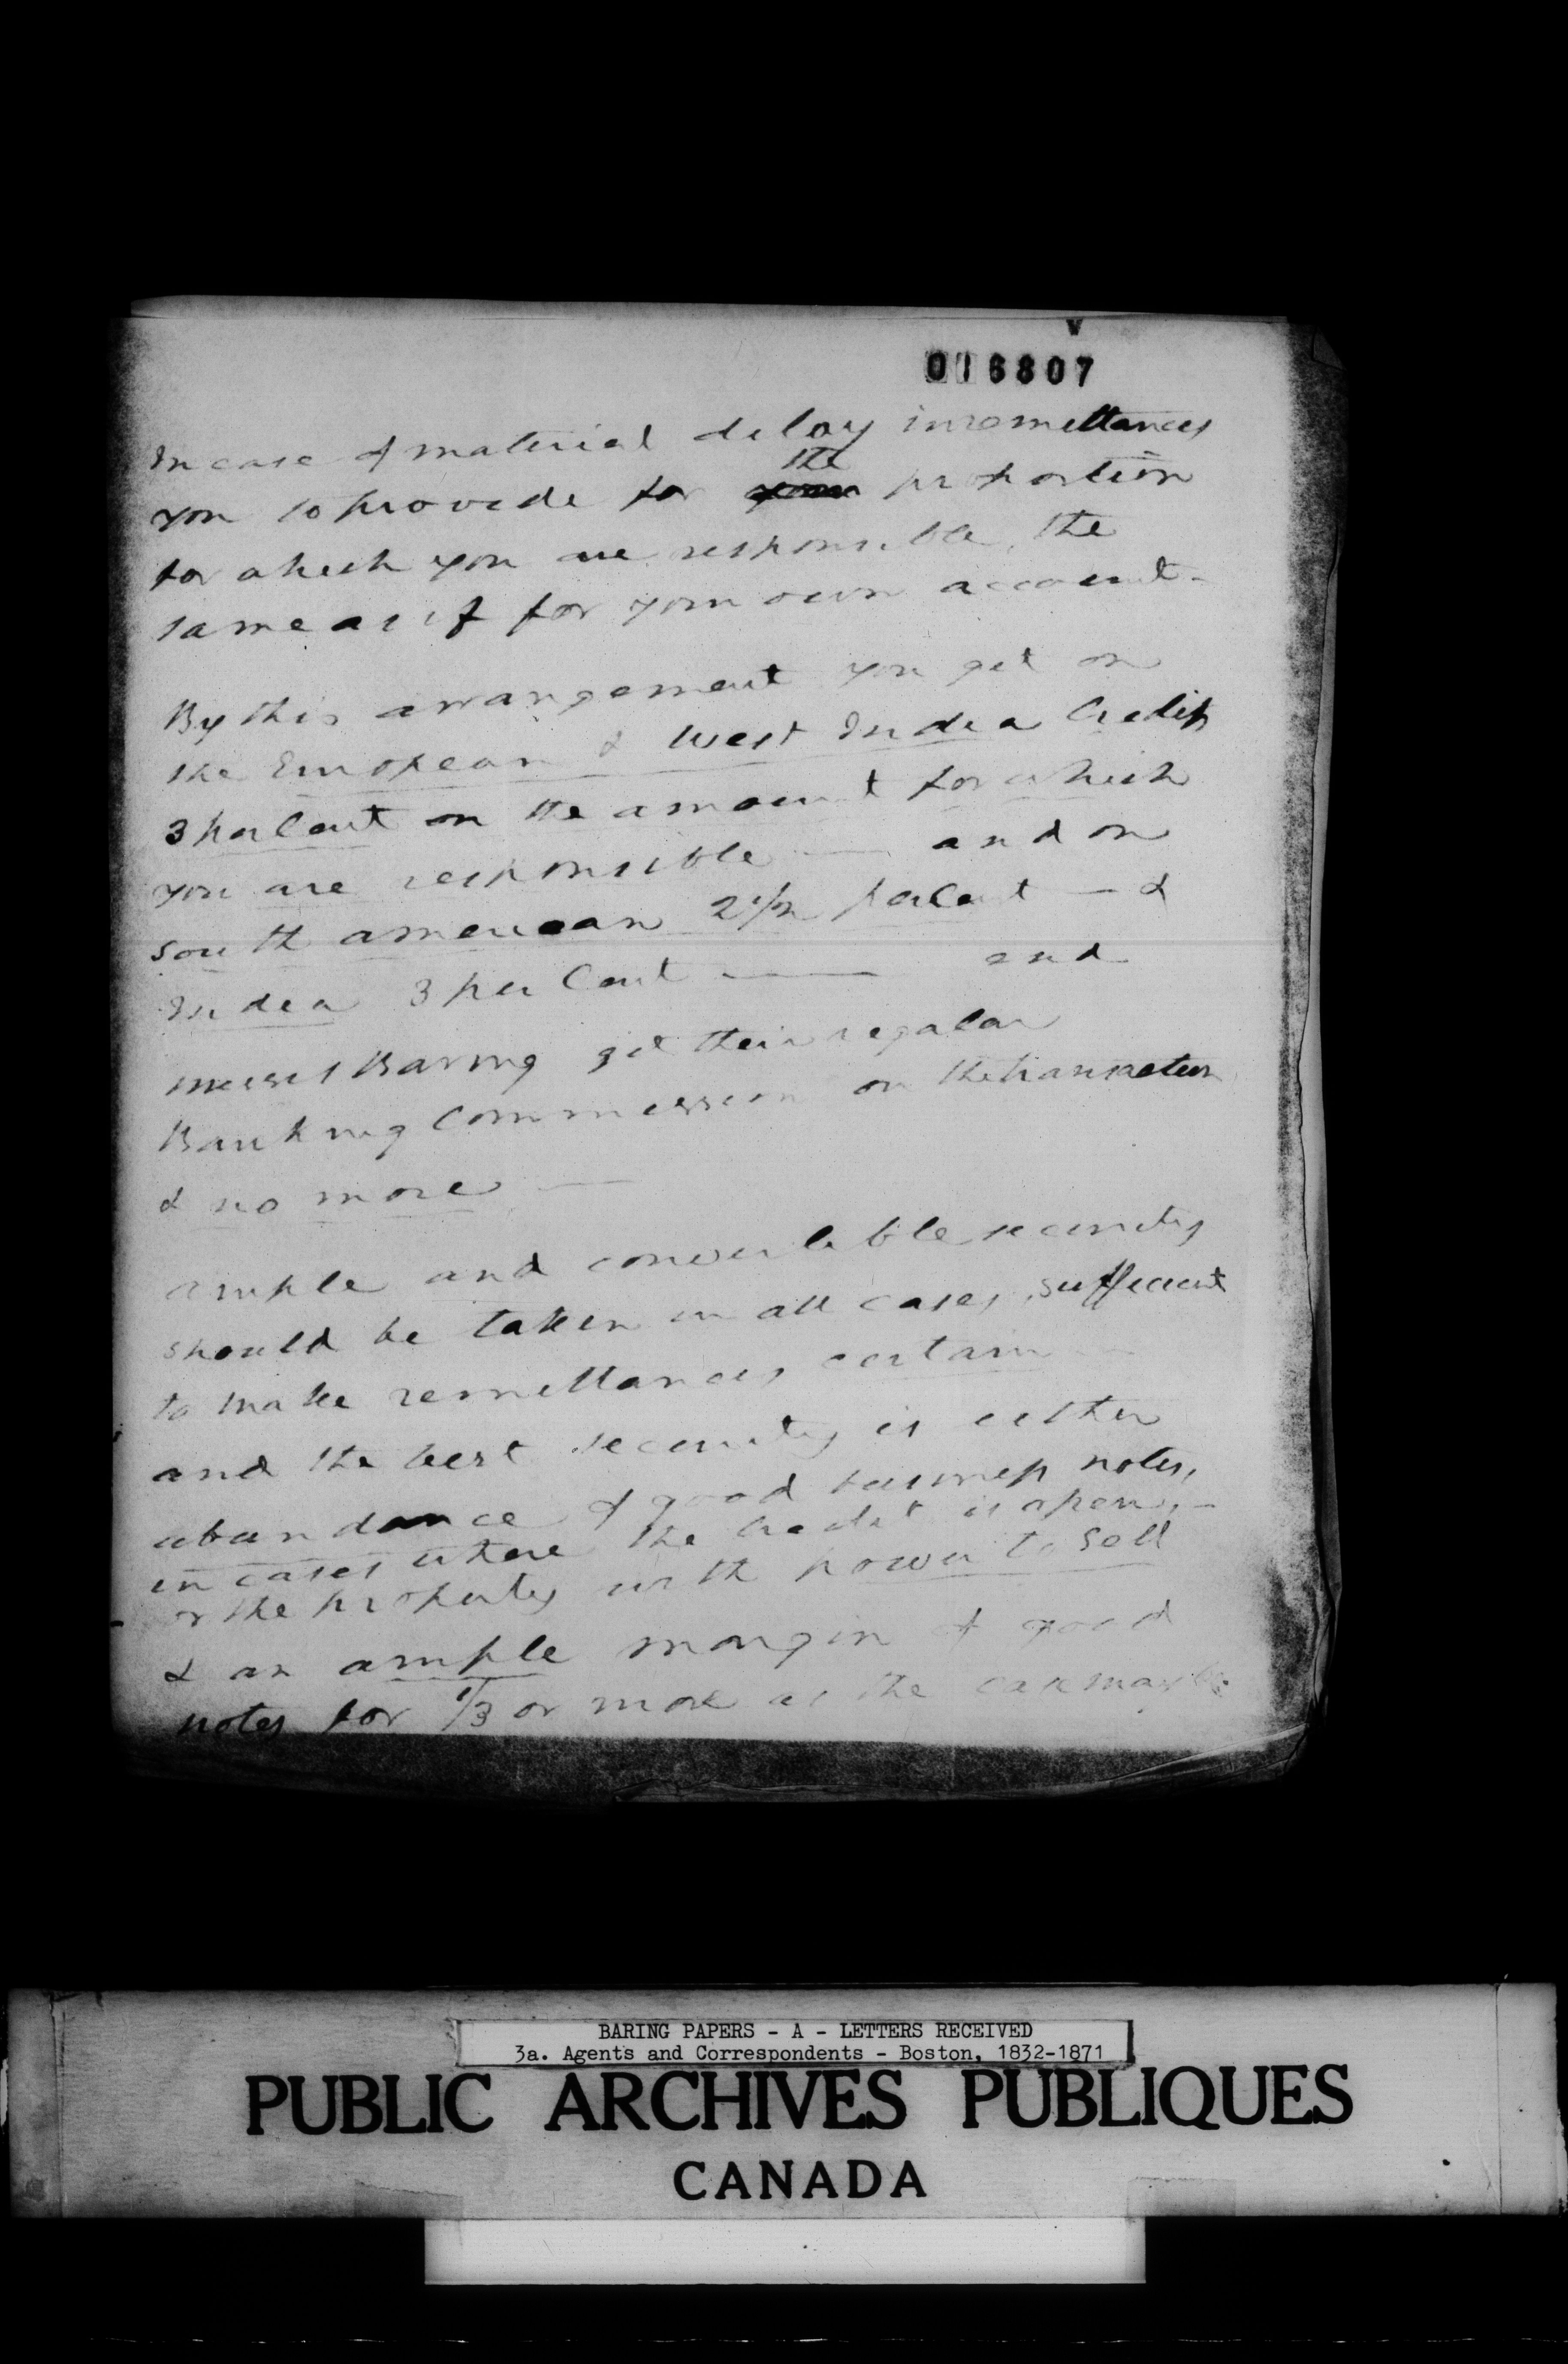 v
016807
In case of material delay in remittances
you to provide for the proportion
for which you are responsible, the
same as if for your own account -
By this arrangement you get on
the European & West India Credits
3 per Cent on the amount for which
you are responsible — and on
South american 2 1/2 per Cent — &
India 3 per Cent — and
messrs Baring get their regular
Banking Commission on the transaction
& no more —
ample and convertible security
should be taken in all cases, sufficient
to make remittances certain —
and the best security is either
abundance of good business notes,
in cases where the Credit is open, -
or the property with power to sell
& an ample margin of good
notes for 1/3 or more as the case may be.
BARING PAPERS - A - LETTERS RECEIVED
3a. Agents and Correspondents - Boston, 1832-1871
PUBLIC ARCHIVES PUBLIQUES
CANADA